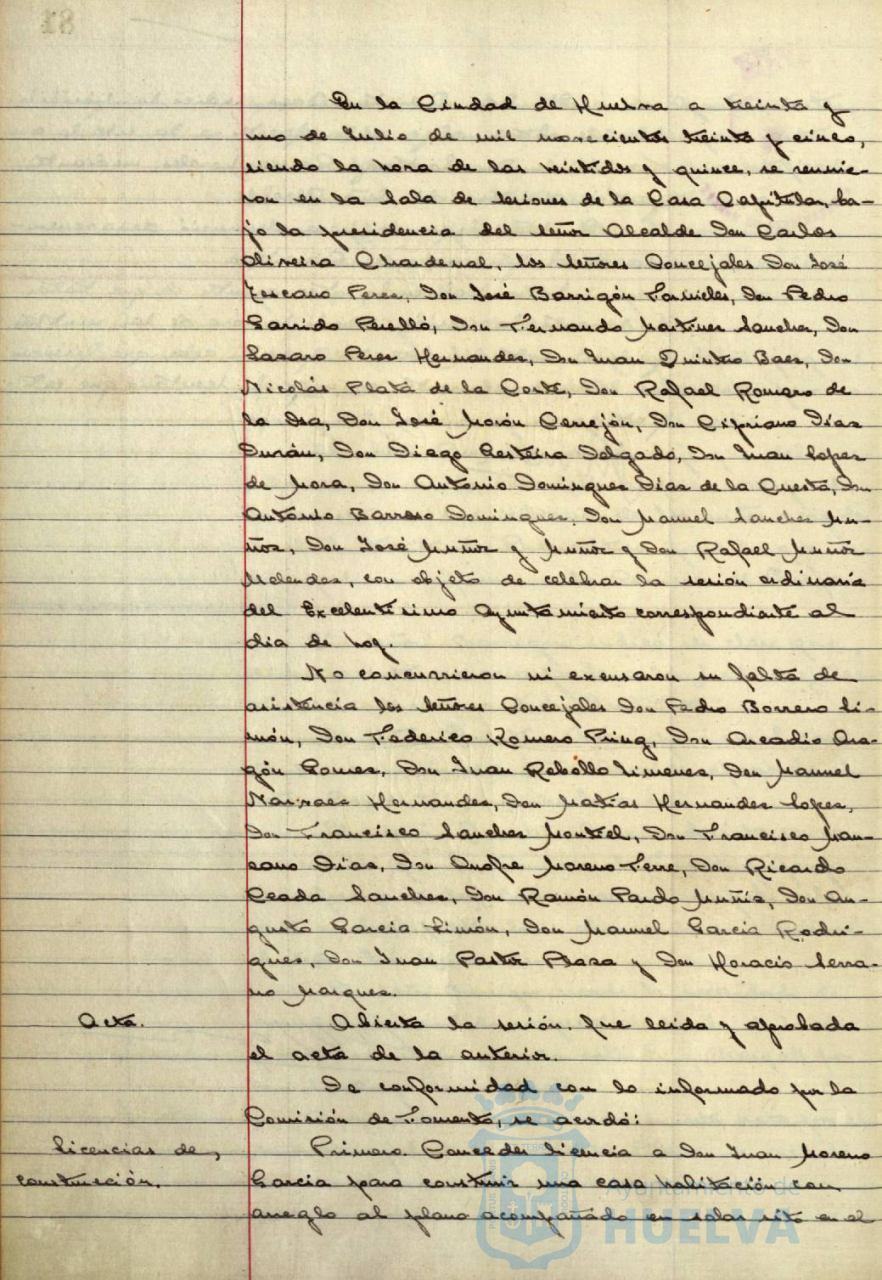 En la Ciudad de Huelva a treinta y
uno de Julio de mil novecientos treinta y cinco,
siendo la hora de las veintidos y quince, se reunie-
ron en la Sala de sesiones de la Casa Capitular, ba-
jo la presidencia del señor Alcalde Don Carlos
Oliveira Chardenal, los señores Concejales Don José
Toscano Perez, Don José Barrigón Fornieles, Don Pedro
Garrido Perelló, Don Fernando Martinez Sanchez, Don
Lazaro Perez Hernandez, Don Juan Quintero Baez, Don
Nicolás Plata de la Corte, Don Rafael Romero de
la Osa, Don José Morón Cerrejón, Don Cipriano Diaz
Durán, Don Diego Gesteira Delgado, Don Juan Lopez
de Mora, Don Antonio Dominguez Diaz de la Cuesta, Don
Antonio Barroso Dominguez, Don Manuel Sanchez Mu-
ñoz, Don José Muñoz y Muñoz y Don Rafael Muñoz
Melendez, con objeto de celebrar la sesión ordinaria
del Excelentisimo Ayuntamiento correspondiente al
dia de hoy.
No concurrieron ni excusaron su falta de
asistencia los señores Concejales Don Pedro Borrero Li-
món, Don Federico Romero Pring, Don Arcadio Ara-
gón Gomez, Don Juan Rebollo Jimenez, Don Manuel
Narvaez Hernandez, Don Matias Hernandez Lopez,
Don Francisco Sanchez Montiel, Don Francisco Man-
zano Diaz, Don Onofre Moreno Ferre, Don Ricardo
Ceada Sanchez, Don Ramón Pardo Muñiz, Don Au-
gusto Garcia Simón, Don Manuel Garcia Rodri-
guez, Don Juan Pastor Plaza y Don Horacio Serra-
no Marquez.
Acta. Abierta la sesión, fue leida y aprobada
el acta de la anterior.
De conformidad con lo informado por la
Comisión de Fomento, se acordó:
Licencias de Primero. Conceder licencia a Don Juan Moreno
construcción. Garcia para construir una casa habitación con
arreglo al plano acompañado en solar sito en el
Ayuntamiento de
HUELVA